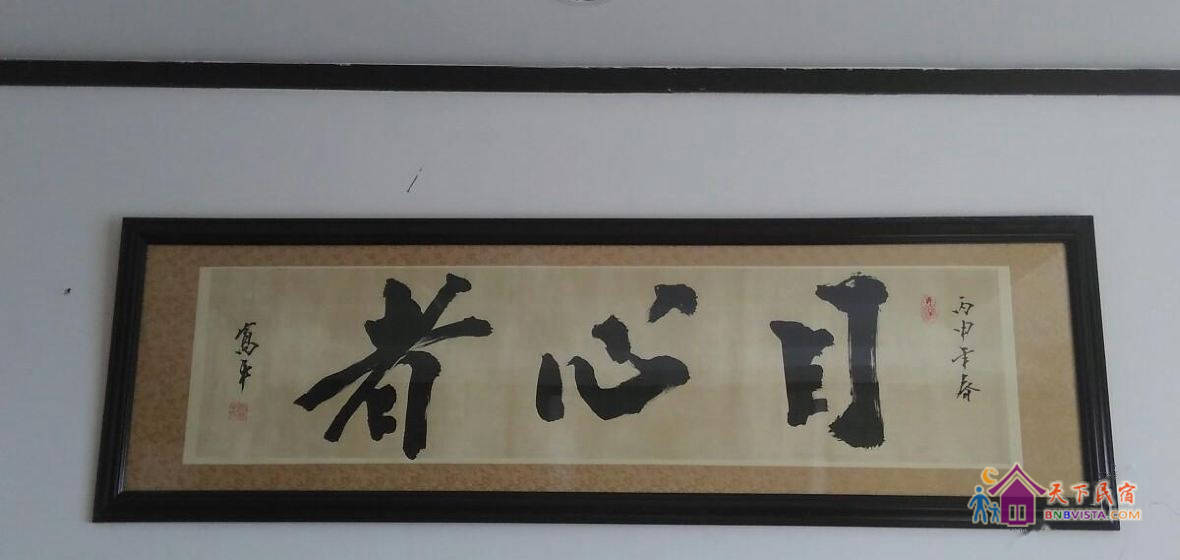 丙申年春
目心者
天下民宿
BNBVISTA.COM